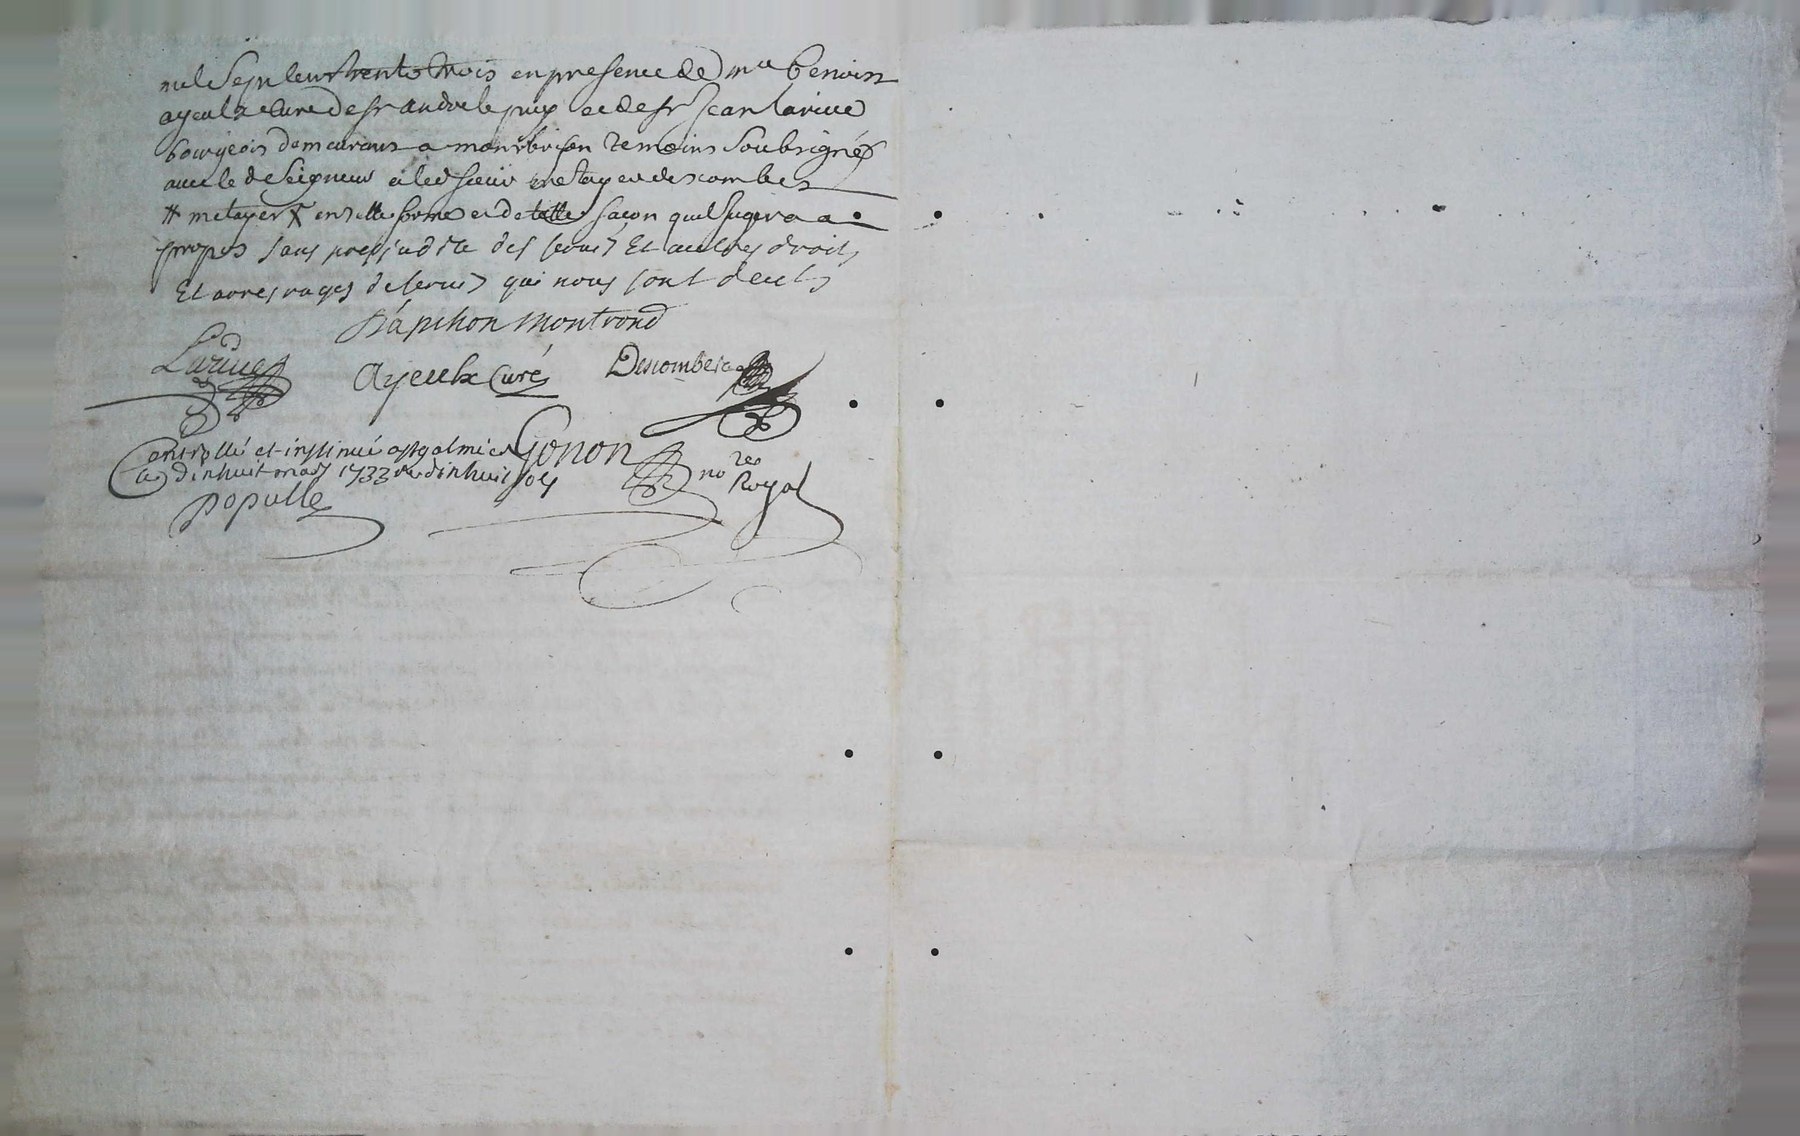 mil sept cent trente trois en presence de mre benoist
ayeulx curé de st andre le puy et de sr jean larive
bourgeois demeurant a montbrison temoins soubsignés
avec le d seigneur et led sieur metayer descombes
# metayer X en telle forme et de telle façon quil jugera a
propos sans prejudice des servis Et autres droits
Et arresrages de servis qui nous sont deubts
Dapchon Montrond
Larive
Ayeulx Curé
Descombes
Gonon no re Royal
Controllé et insinué a st galmier
ce dixhuit mars 1733 dixhuit sols
populle